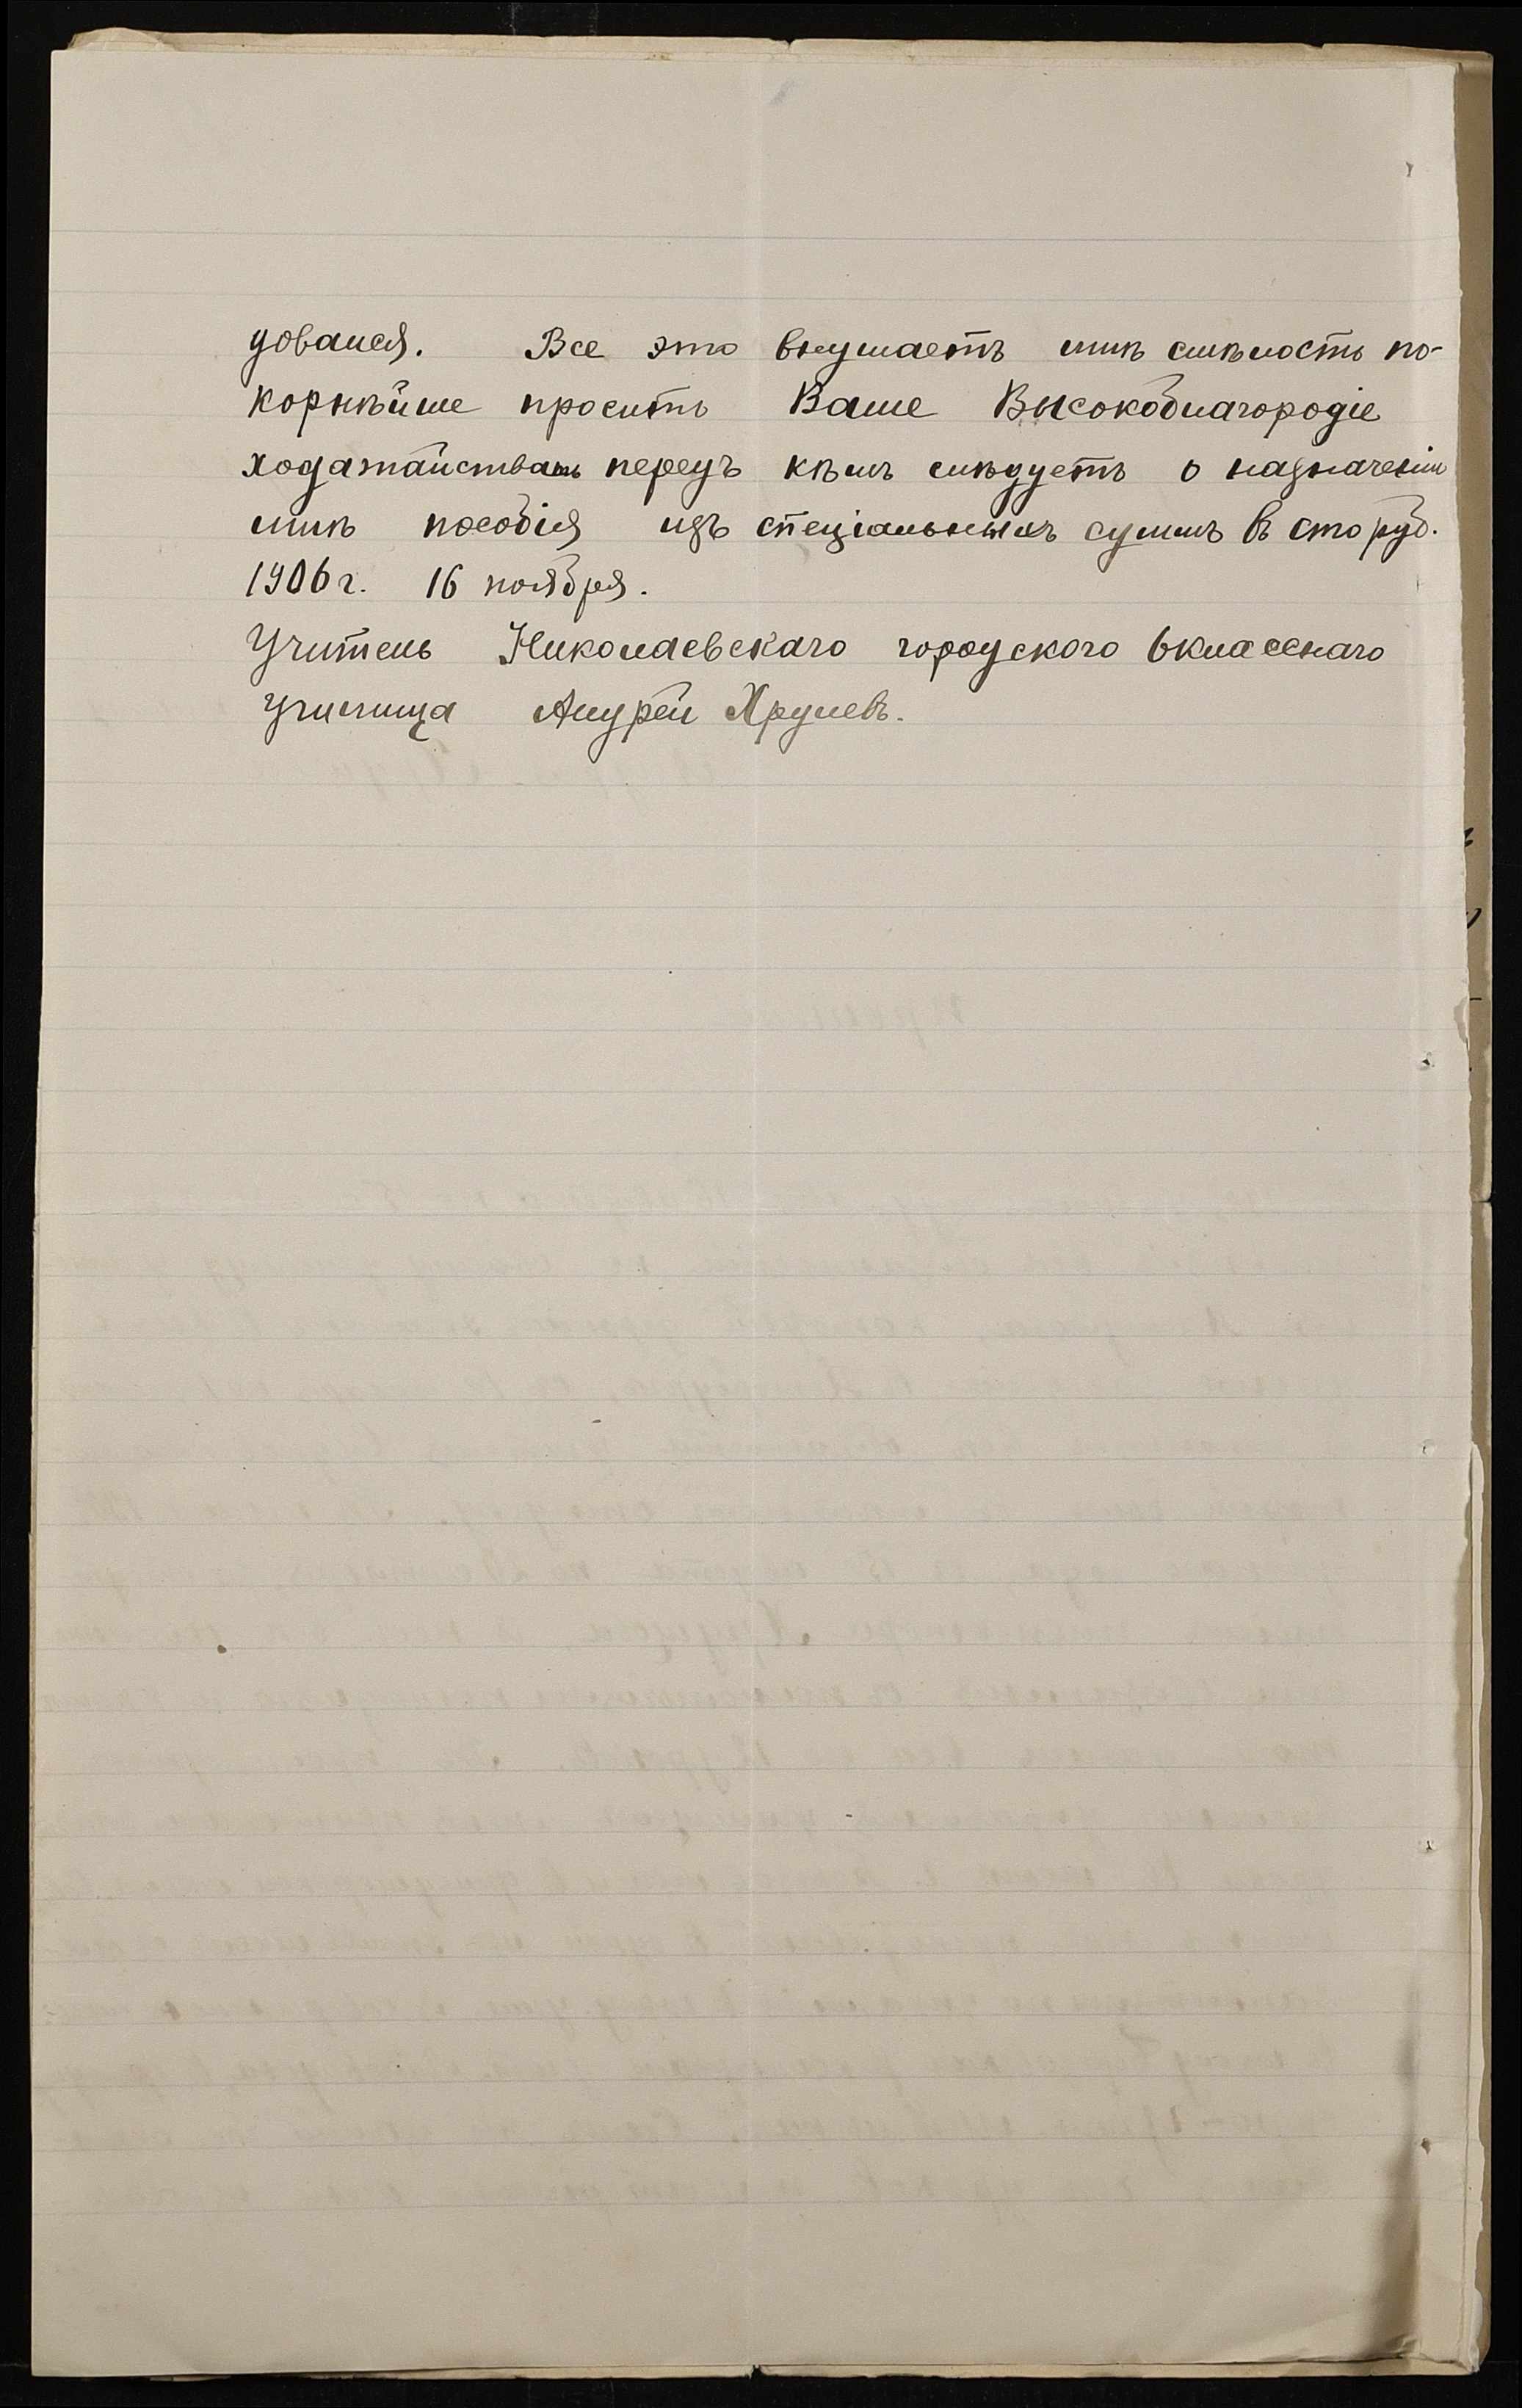 довался. Все это внушаетъ мнѣ смѣлость по-
корнѣйше просить Ваше Высокоблагородіе
ходатайствать передъ кѣмъ слѣдуетъ о назначеніи
мнѣ пособія изъ спеціальныхъ суммъ въ сто руб.
1906 г. 16 ноября.
Учитель Николаевскаго городского 6классного
училища Андрей Хрулевъ.